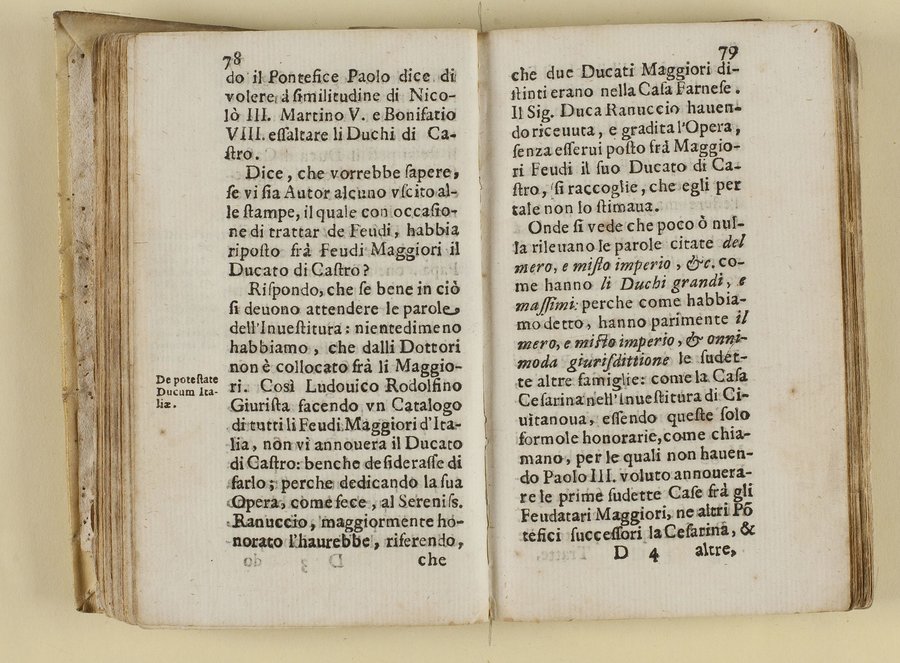 78
do il Pontefice Paolo dice di
volere à ſimilitudine di Nico-
lò III. Martino V. e Bonifatio
VIII. eſſaltare li Duchi di Ca-
ſtro.
Dice, che vorrebbe ſapere,
ſe vi ſia Autor alcuno vſcito al-
le ſtampe, il quale con occaſio-
ne di trattar de Feudi, habbia
ripoſto frà Feudi Maggiori il
Ducato di Caſtro?
Riſpondo, che ſe bene in ciò
ſi deuono attendere le parole
dell'Inueſtitura: nientedimeno
habbiamo, che dalli Dottori
non è collocato frà li Maggio-
ri. Così Ludouico Rodolfino
Giuriſta facendo vn Catalogo
di tutti li Feudi Maggiori d'Ita-
lia, non vi annouera il Ducato
di Caſtro: benche deſideraſſe di
farlo; perche dedicando la ſua
Opera, come fece, al Sereniſs.
Ranuccio, maggiormente ho-
norato l'haurebbe, riferendo,
che
De poteſtate
Ducum Ita-
liæ.
79
che due Ducati Maggiori di-
ſtinti erano nella Caſa Farneſe.
Il Sig. Duca Ranuccio hauen-
do riceuuta, e gradita l'Opera,
ſenza eſſerui poſto frà Maggio-
ri Feudi il ſuo Ducato di Ca-
ſtro, ſi raccoglie, che egli per
tale non lo ſtimaua.
Onde ſi vede che poco ò nul-
la rileuano le parole citate del
mero, e miſto imperio, &c. co-
me hanno li Duchi grandi, e
maſſimi: perche come habbia-
mo detto, hanno parimente il
mero, e miſto imperio, & onni-
moda giuriſdittione le ſudet-
te altre famiglie: come la Caſa
Ceſarina nell'Inueſtitura di Ci-
uitanoua, eſſendo queſte ſolo
formole honorarie, come chia-
mano, per le quali non hauen-
do Paolo III. voluto annouera-
re le prime ſudette Caſe frà gli
Feudatari Maggiori, ne altri Põ
tefici ſucceſſori la Ceſarina, &
D 4 altre,